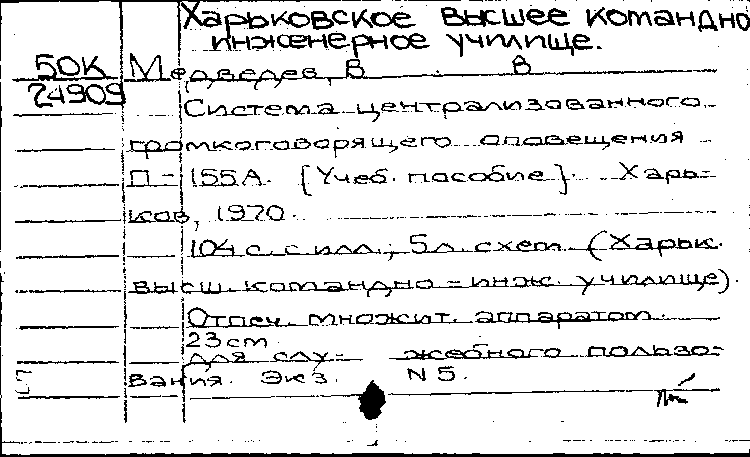 Харьковское высшее командно
инженерное училище.
50К Медведев, В. В
24909
Система централизованного
громкоговорящего оповещения
П-155А. [Учеб. пособие]. Харь-
ков, 1970.
104 с. с илл.; 5л. схем. (Харьк.
высш. командно-инж. училище).
Отпеч. множит. аппаратом.
23см
Для слу- жебного пользо-
вания. Экз. N 5.